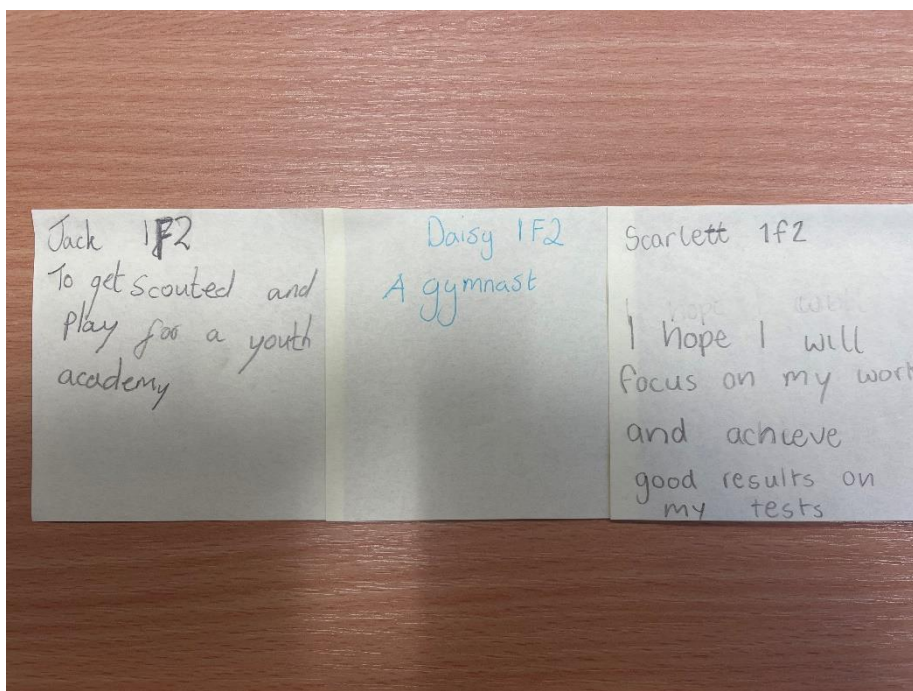 Jack 1F2
To get scouted and
play for a youth
academy
Daisy 1F2
A gymnast
Scarlett 1f2
I hope I will
I hope I will
focus on my work
and achieve
good results on
my tests